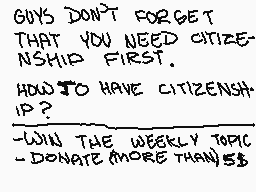 GUYS DON'T FORGET
THAT YOU NEED CITIZE-
NSHIP FIRST.
HOW TO HAVE CITIZENSH-
IP?
-WIN THE WEEKLY TOPIC
- DONATE (MORE THAN) 5$